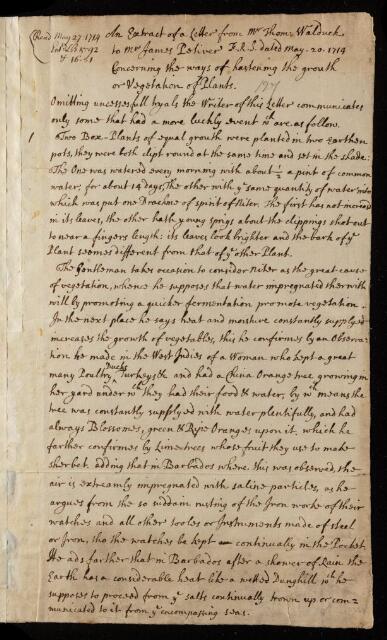 Read May 27 1714
An Extract of a Letter from Mr Thom: Walduck
to Mr James Petiver F.R.S. dated May. 20. 1714
Concerning the ways of hastening the growth
or Vegetation of Plants.
Omitting uncesessfull tryals the Writer of this Letter communicates
only some that had a more luckly event wch are as follow.
Two Box-Plants of equal growth were planted in two Earthen
pots, they were both clipt round at the same time and set in the shade:
The One was watered every morning with about ½ a pint of common
water, for about 14 days, The other with ye same quantity of water into
which was put one Drachme of spirit of Niter. The first has not increas'd
in its leaves, the other hath young sprigs about the clippings shot out
to near a fingers length: its leaves look brighter and the bark of ye
Plant seemes different from that of ye other Plant.
The Gentleman takes occasion to consider Niter as the great cause
of vegetation, whence he supposes that water impregnated therewith
will by promoting a quicker fermentation promote vegetation.
In the next place he says heat and moisture constantly supplyed
increases the growth of vegetables, this he confirms by an Observa=
tion he made in the West Indies of a Woman who kept a great
many Poultry, Ducks Turkeys &c and had a China Orange tree growing in
her yard under wch they had their food & water, by wch means the
tree was constantly supplyed with water plentifully, and had
always Blossomes, green & Ripe Oranges upon it. which he
farther confirms by Lime trees whose fruit they use to make
sherbet. adding that in Barbados where this was observed, the
air is extreamly impregnated with saline particles, as he
argues from the so suddain rusting of the Iron worke of their
watches and all other tooles or Instruments made of steel
or Iron, tho the watches be kept continually in the Pocket.
He ads farther that in Barbados after a shower of Rain the
Earth has a considerable heat like a wetted Dunghill wch he
supposes to proceed from ye salts continually thrown up or com=
municated to it from ye encompassing seas.